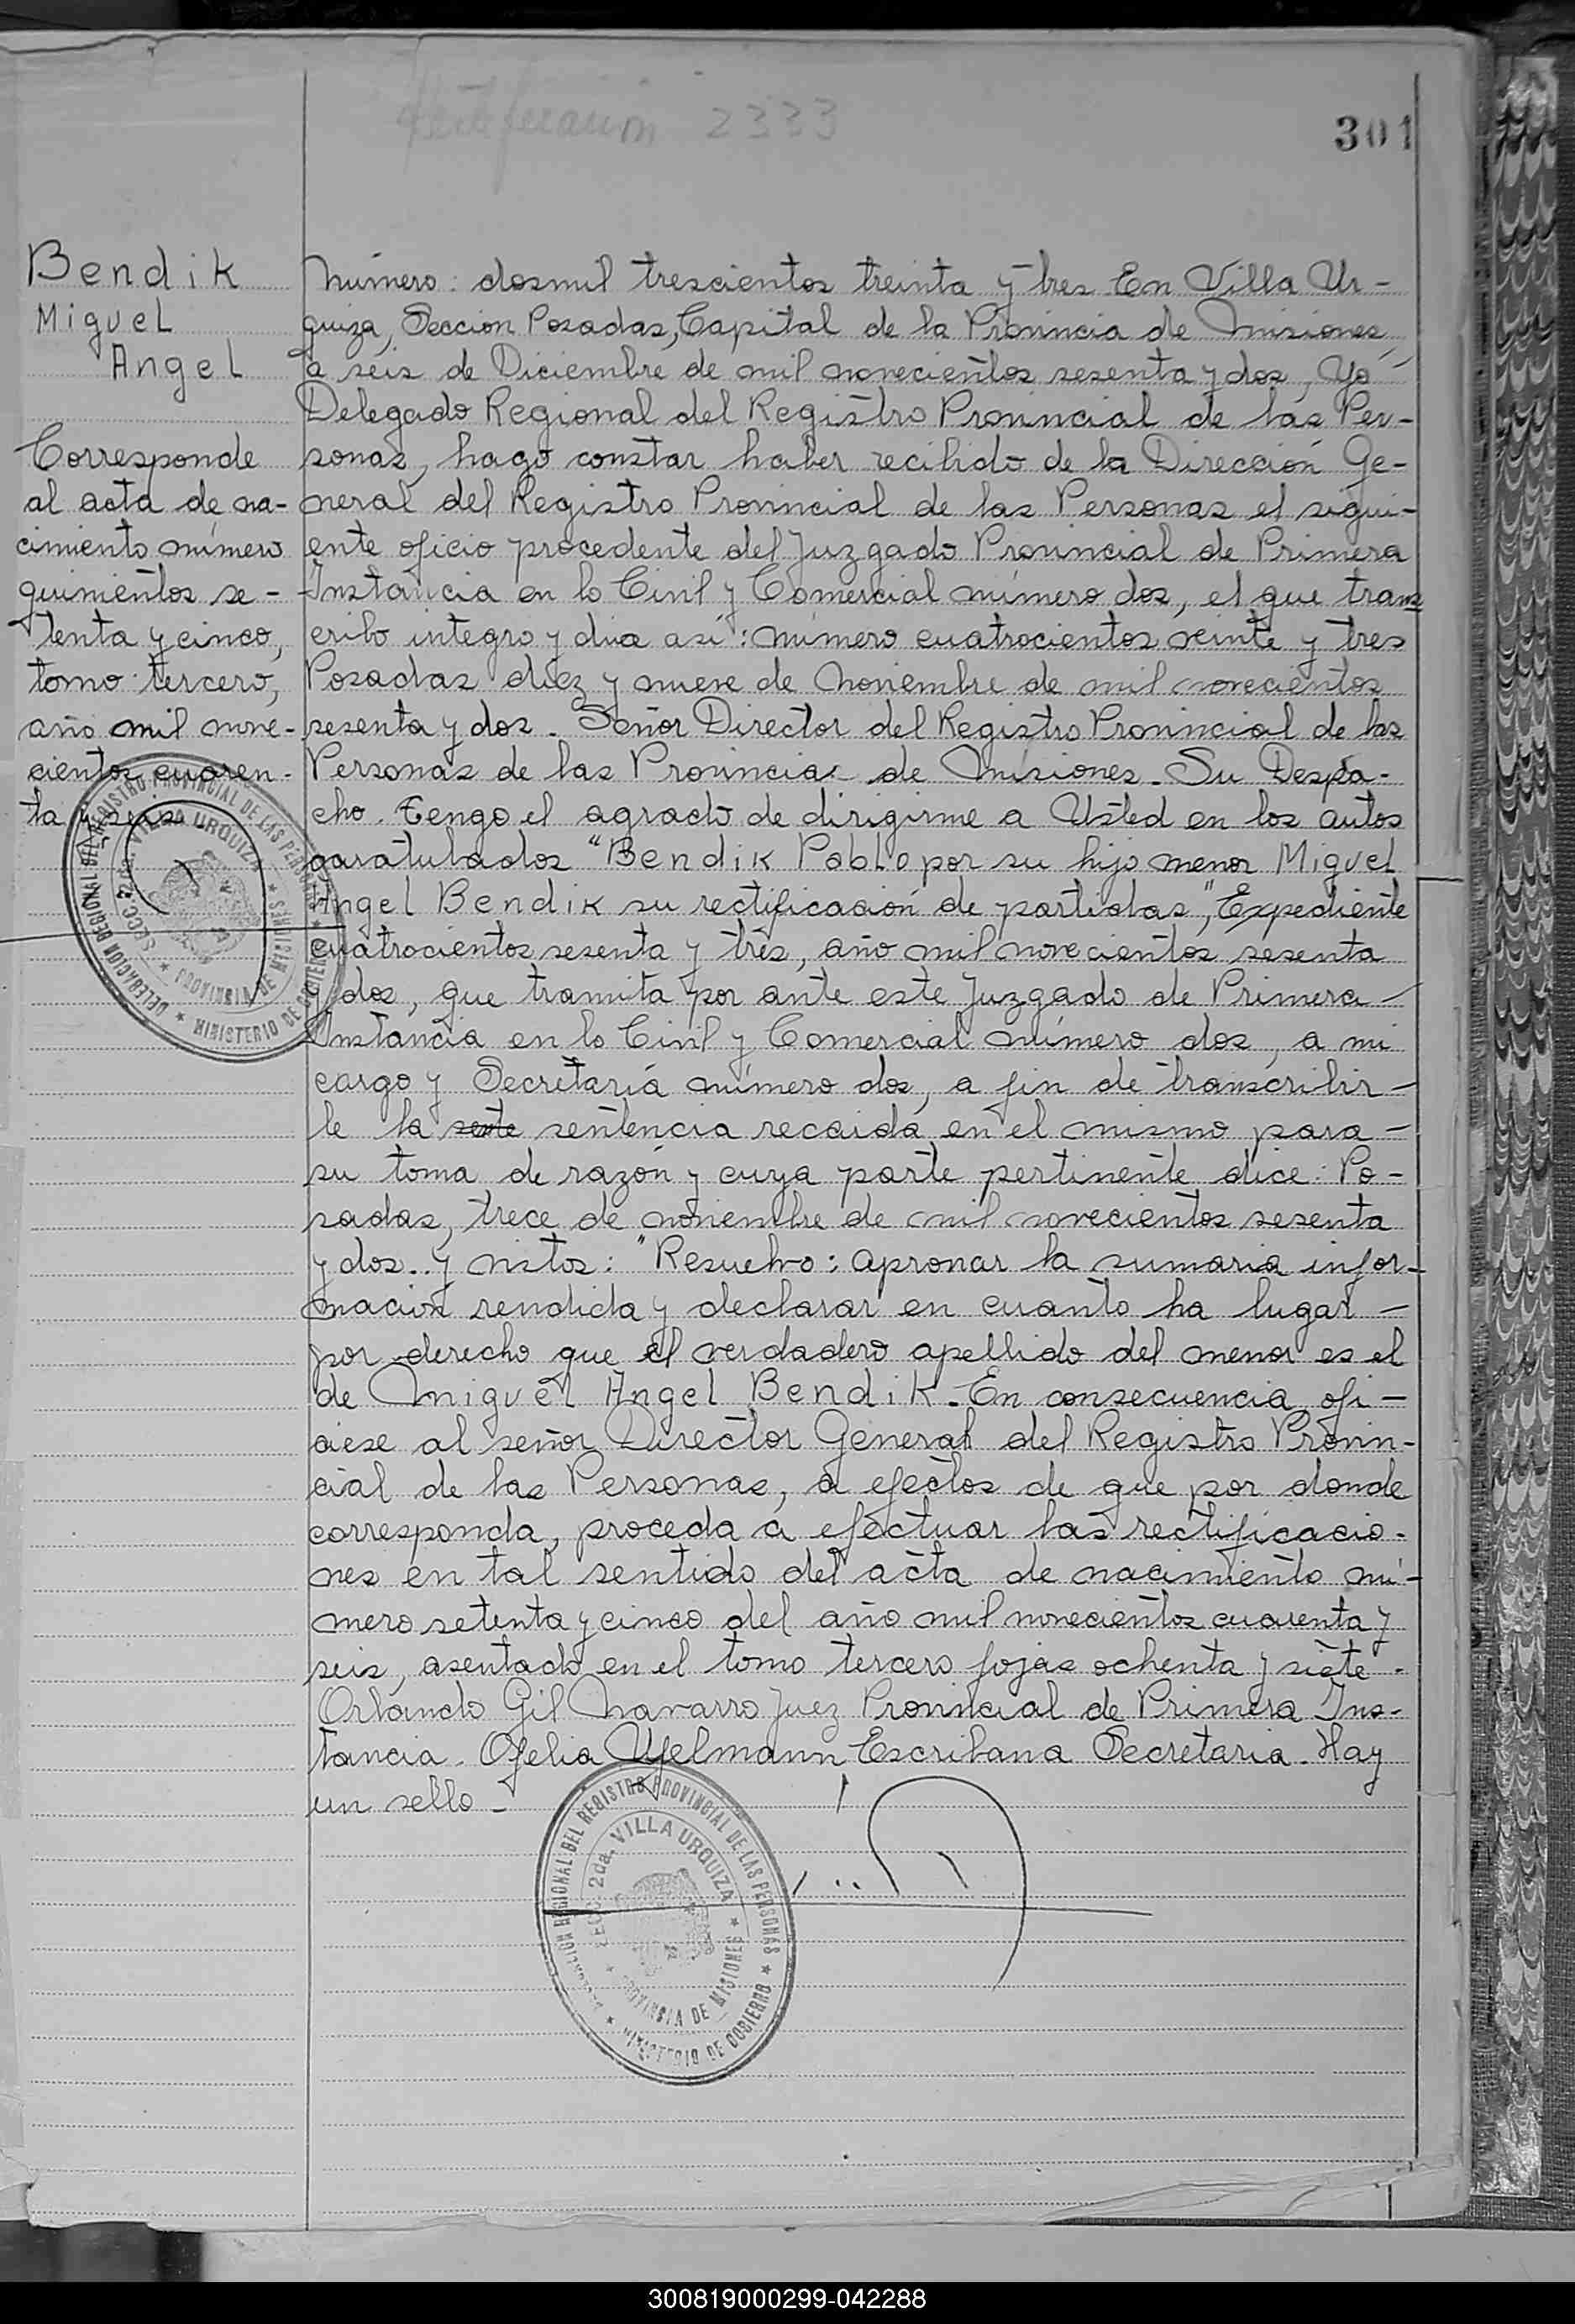 Rectificación 2333
301
Bendik
Miguel
Angel
Corresponde
al acta de na-
cimiento número
quinientos se-
tenta y cinco,
tomo tercero,
año mil nove-
cientos cuaren-
ta y seis
Número: dosmil trescientos treinta y tres En Villa Ur-
quiza, Sección Posadas, Capital de la Provincia de Misiones,
a seis de Diciembre de mil novecientos sesenta y dos, Yo
Delegado Regional del Registro Provincial de las Per-
sonas, hago constar haber recibido de la Dirección Ge-
neral del Registro Provincial de las Personas el sigui-
ente oficio procedente del Juzgado Provincial de Primera
Instancia en lo Civil y Comercial número dos, el que trans
cribo integro y dice así: número cuatrocientos veinte y tres
Posadas diez y nueve de Noviembre de mil novecientos
sesenta y dos. Señor Director del Registro Provincial de las
Personas de las Provincia de Misiones. Su Despa-
cho. Tengo el agrado de dirigirme a Usted en los autos
caratulados "Bendik Pablo por su hijo menor Miguel
Angel Bendik su rectificación de partidas", Expediente
cuatrocientos sesenta y tres, año mil novecientos sesenta
y dos, que tramita por ante este Juzgado de Primera
Instancia en lo Civil y Comercial número dos, a mi
cargo y Secretaría número dos, a fin de transcribir-
le la sente sentencia recaida en el mismo para
su toma de razón y cuya parte pertinente dice: Po-
sadas, trece de noviembre de mil novecientos sesenta
y dos.. y vistos: "Resuelvo: aprovar la sumaria infor-
mación rendida y declarar en cuanto ha lugar
por derecho que el verdadero apellido del menor es el
de Miguel Angel Bendik. En consecuencia ofi-
ciese al señor Director General del Registro Provin-
cial de las Personas, a efectos de que por donde
corresponda, proceda a efectuar las rectificacio-
nes en tal sentido del acta de nacimiento nú-
mero setenta y cinco del año mil novecientos cuarenta y
seis, asentado en el tomo tercero fojas ochenta y siete.
Orlando Gil Navarro Juez Provincial de Primera Ins-
tancia. Ofelia Escribana Secretaria. Hay
un sello -
DELEGACIÓN REGIONAL DEL REGISTRO PROVINCIAL DE LAS PERSONAS
SECC. 2da. VILLA URQUIZA
PROVINSIA DE MISIONES
MINISTERIO DE GOBIERNO
DELEGACIÓN REGIONAL DEL REGISTRO PROVINCIAL DE LAS PERSONAS
SECC. 2da. VILLA URQUIZA
PROVINSIA DE MISIONES
MINISTERIO DE GOBIERNO
300819000299-042288